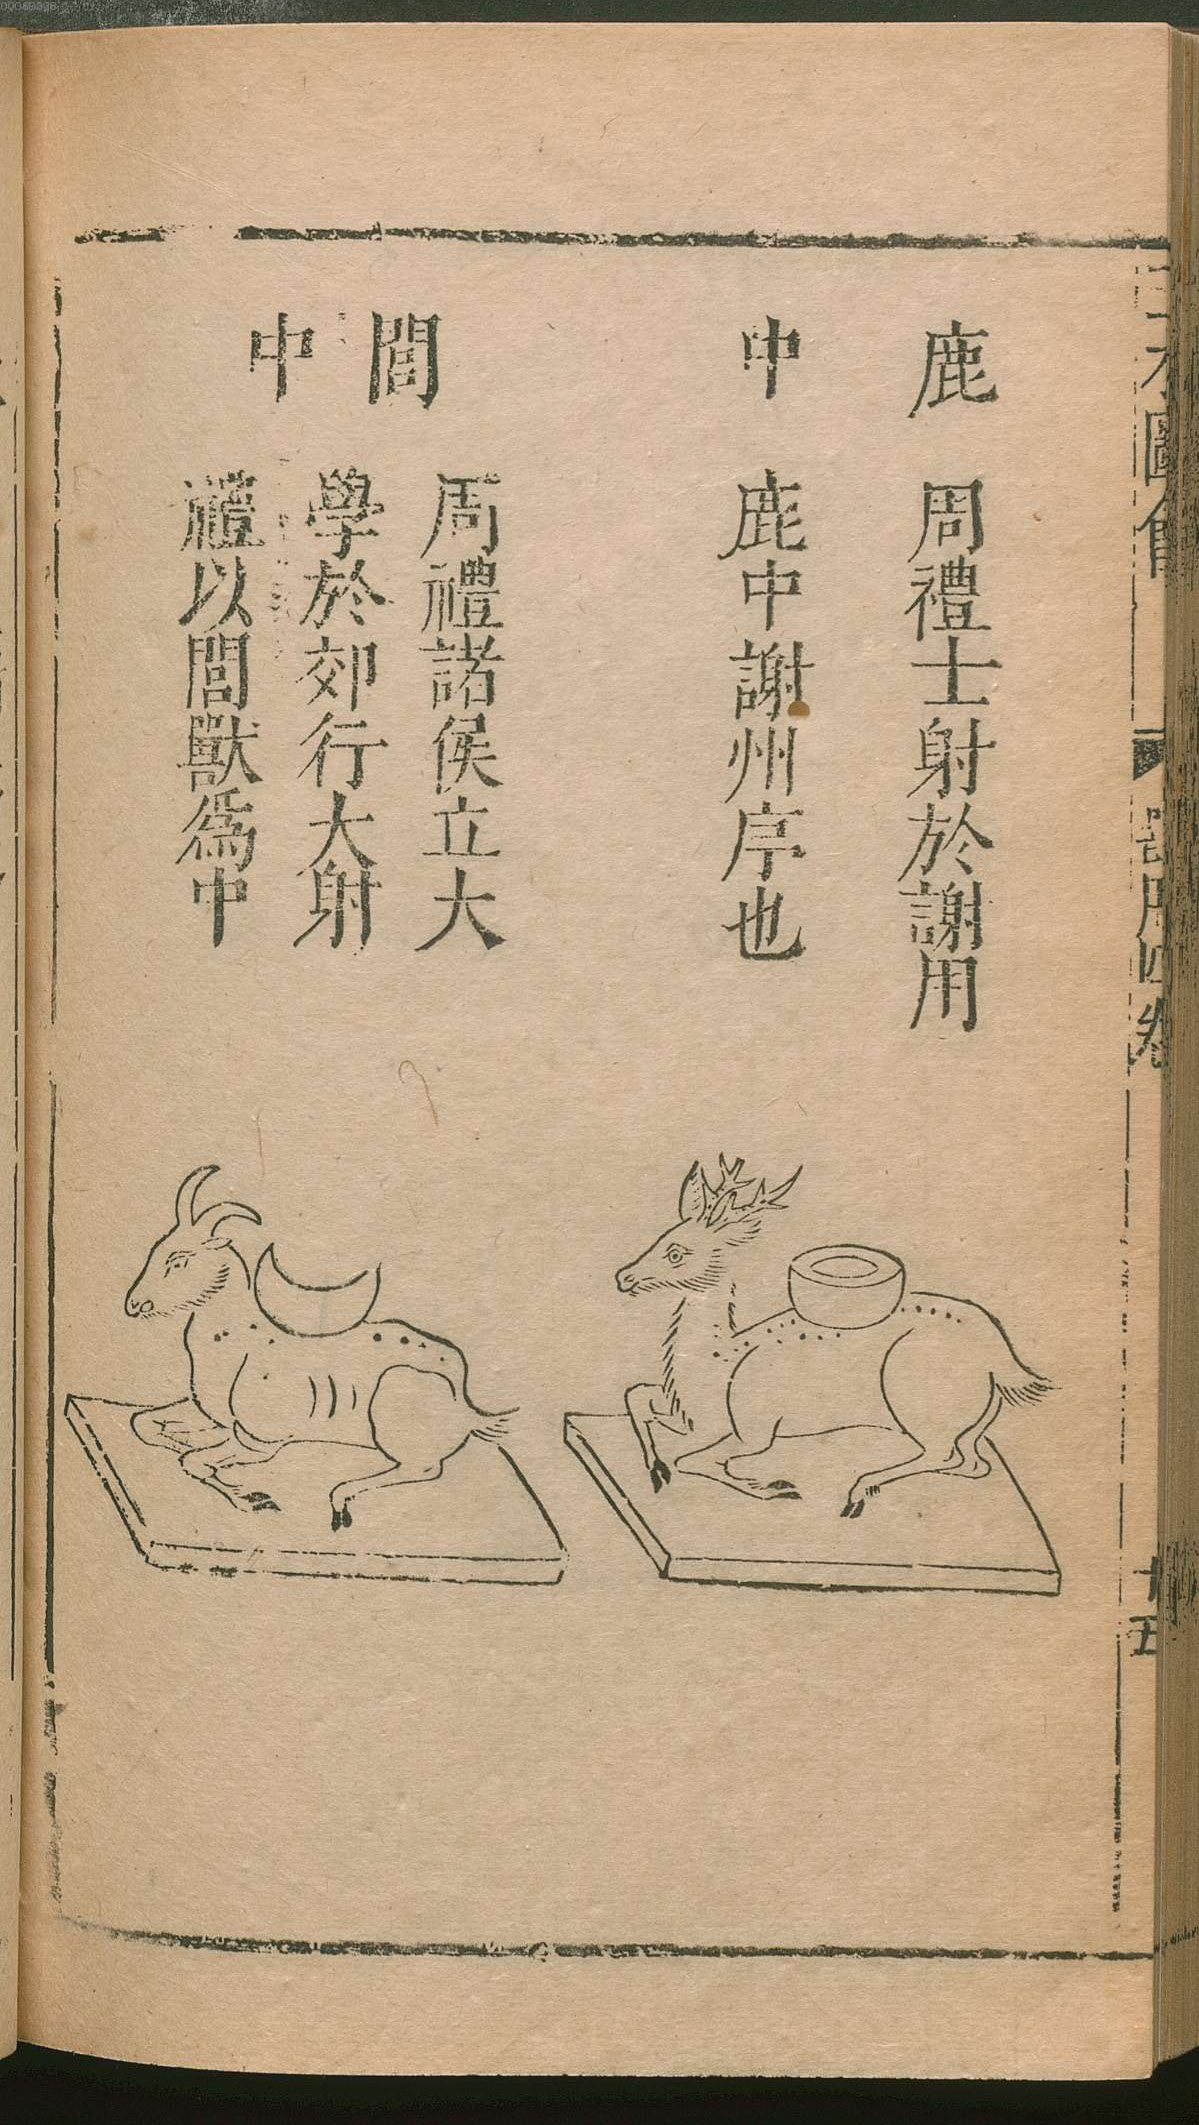 三才圖會
器用四卷
十五
鹿 周禮士射於謝用
中 鹿中謝州序也
閭中
周禮諸侯立大
學於郊行大射
禮以閭獸爲中